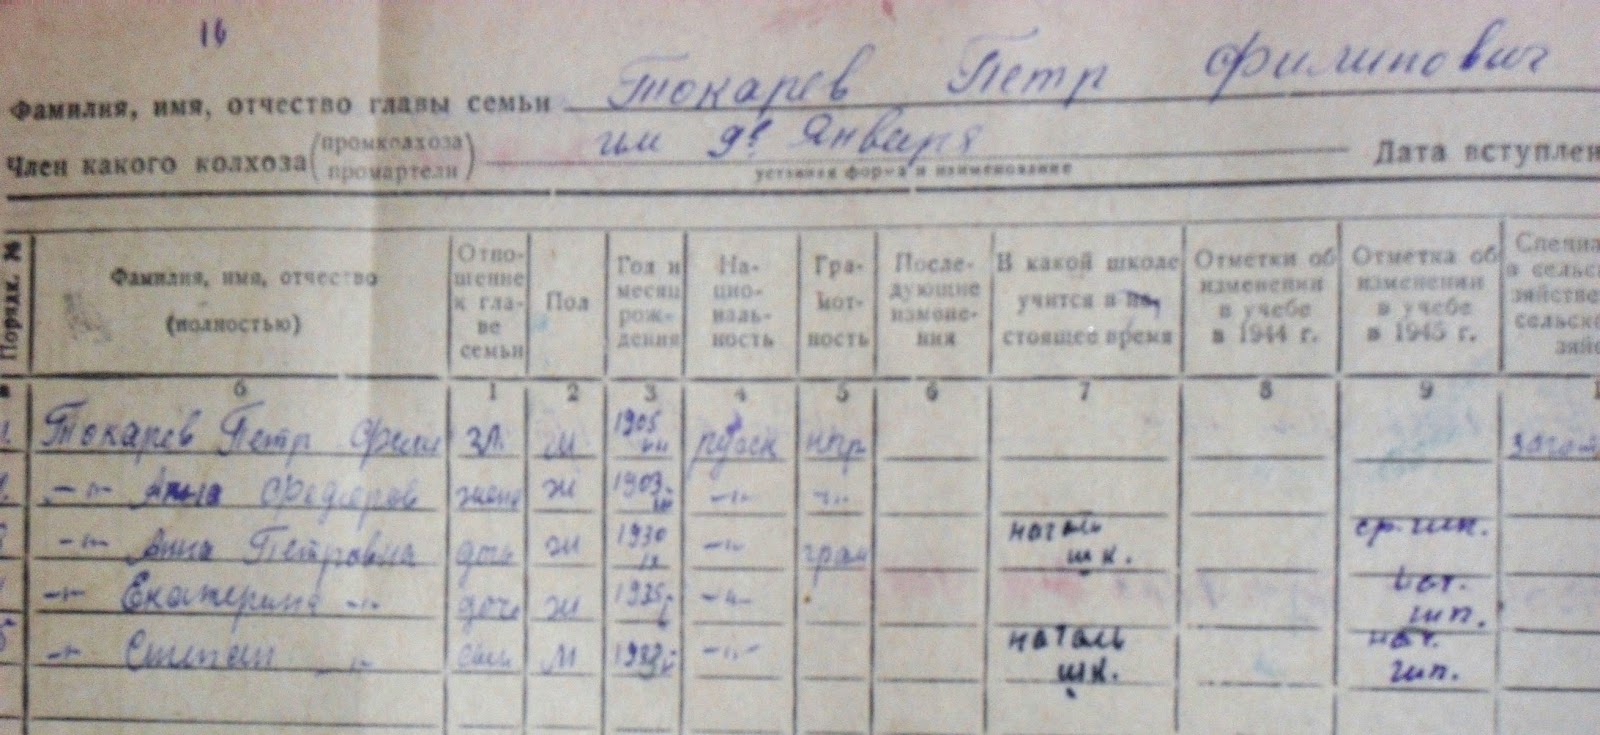 16
Фамилия, имя, отчество главы семьи Токарев Петр Филипович
Член какого колхоза (промколхоза промартели) им 9го Января Дата вступлен
уставная форма и наименование
Порядк. № Фамилия, имя, отчество (полностью) Отношение к главе семьи Пол Год и месяц рождения Национальность Грамотность Последующие изменения В какой школе учится в настоящее время Отметки об изменении в учебе в 1944 г. Отметка об изменении в учебе в 1945 г. Специа в сельс зяйстве сельско зяйс
а б 1 2 3 4 5 6 7 8 9 1
1. Токарев Петр Фили гл. м 1905 русск нгр загот
-"- Анна Федоров жена ж 1903 -"- -"-
-"- Анна Петровна дочь ж 1930 IX -"- грам началь шк. ср. шк.
-"- Екатерина -"- доче ж 1935 -"- нач. шк.
-"- Степан -"- сын м -"- началь шк. нач. шк.